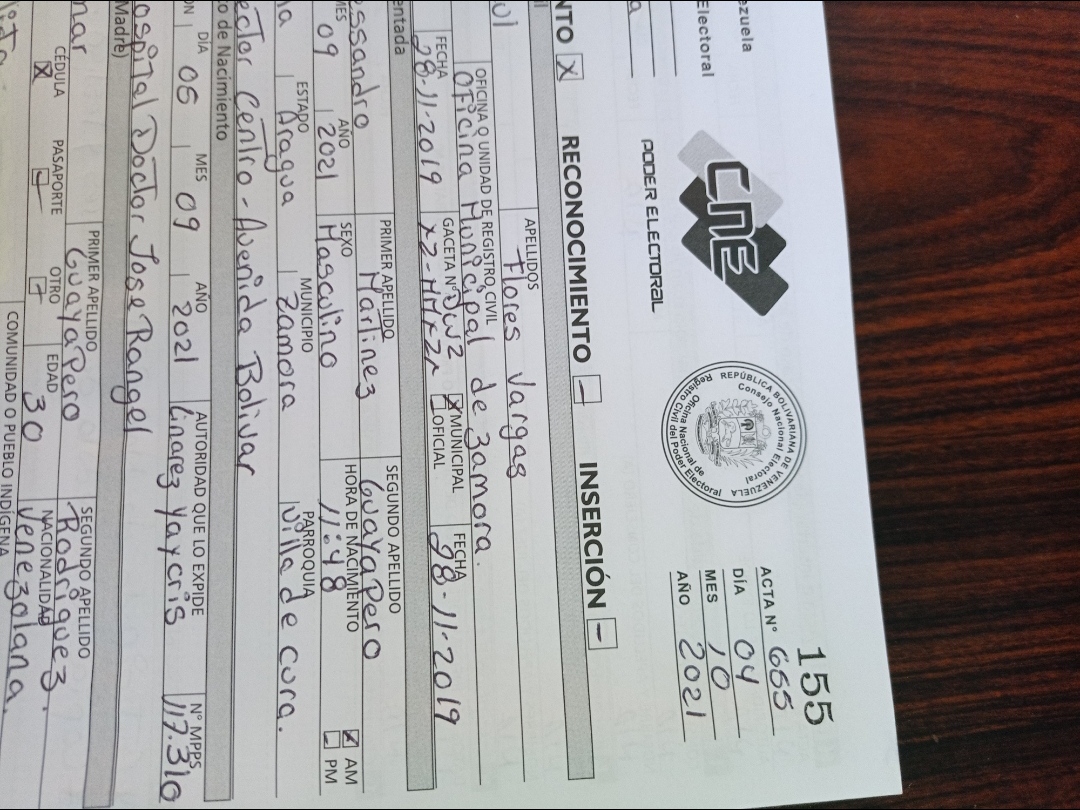 155
ezuela
Electoral
CNE
PODER ELECTORAL
REPÚBLICA BOLIVARIANA DE VENEZUELA
Consejo Nacional Electoral
Oficina Nacional de
Registro Civil del Poder Electoral
ACTA N° 665
DÍA 04
MES 10
AÑO 2021
a
NTO X RECONOCIMIENTO - INSERCIÓN -
APELLIDOS
ul Flores Vargas
OFICINA O UNIDAD DE REGISTRO CIVIL
Oficina Municipal de Zamora.
FECHA GACETA N° MUNICIPAL OFICIAL FECHA
28-11-2019 28-11-2019
entada
PRIMER APELLIDO SEGUNDO APELLIDO
essandro Martinez Guayapero
MES AÑO SEXO HORA DE NACIMIENTO
09 2021 Masculino 11:48 X AM PM
ESTADO MUNICIPIO PARROQUIA
na Aragua Zamora Villa de cura.
ector Centro - Avenida Bolivar
o de Nacimiento
ÓN DÍA MES AÑO AUTORIDAD QUE LO EXPIDE N° MPPS
05 09 2021 Linarez Yaycris 117.310
ospital Doctor Jose Rangel
Madre)
PRIMER APELLIDO SEGUNDO APELLIDO
mar Guayapero Rodriguez.
CÉDULA PASAPORTE OTRO EDAD NACIONALIDAD
X 30 Venezolana.
COMUNIDAD O PUEBLO INDÍGENA